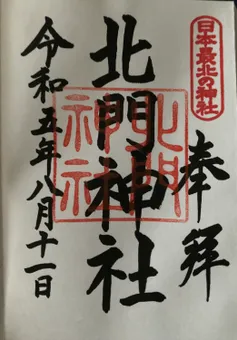 日本最北の神社
奉拝
北門神社
北門神社
令和五年八月十一日